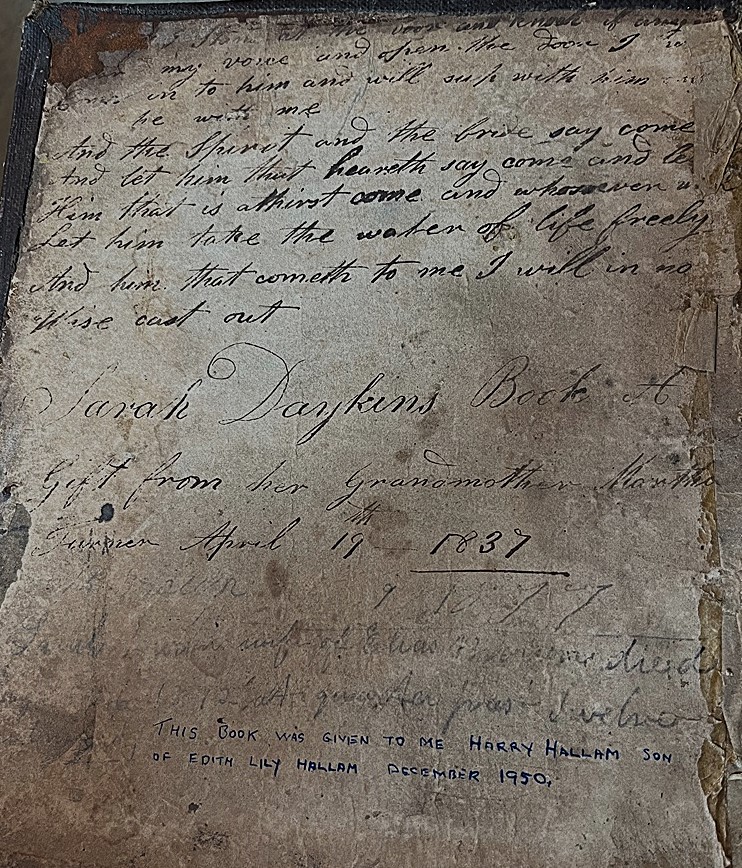 I stand at the door and knock if any
my voice and open the door I
in to him and will sup with him
he with me
And the Spirit and the bride say come
And let him that heareth say come and le
Him that is athirst come and whosoever
Let him take the water of life freely
And him that cometh to me I will in no
Wise cast out
Sarah Daykins Book A
Gift from her Grandmother Martha
Turner April 19th 1837
9 1877
wife of Elias died
quarter past twelve
THIS BOOK WAS GIVEN TO ME HARRY HALLAM SON
OF EDITH LILY HALLAM DECEMBER 1950,